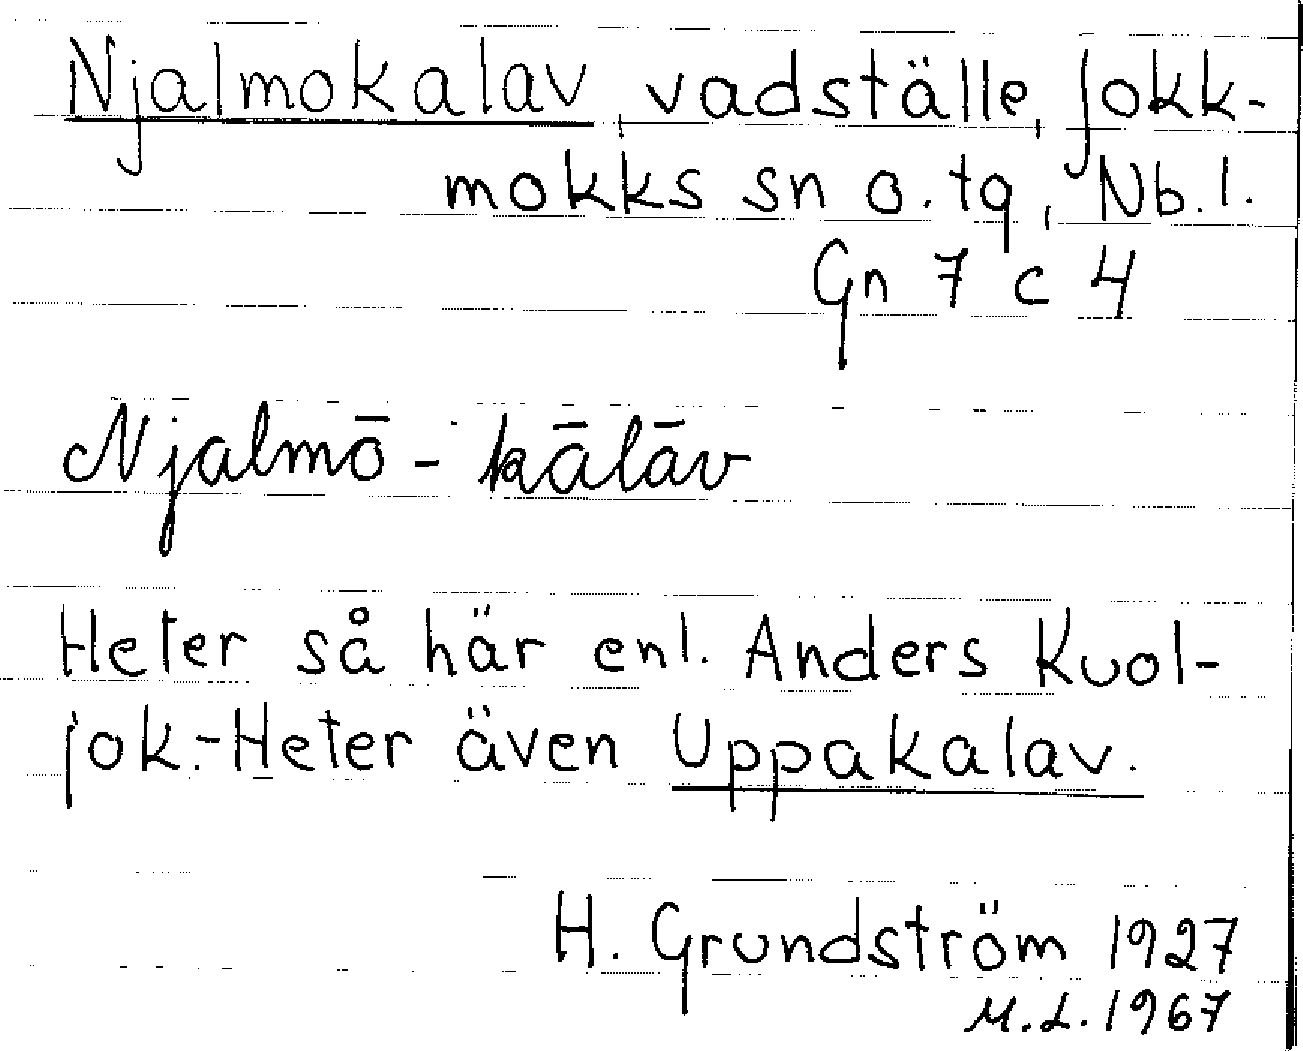 Njalmokalav, vadställe, Jokk-
mokks sn o. tg, Nb. l.
Gn 7 c 4
Njalmō-kālāv
Heter så här enl. Anders Kuol-
jok.-Heter även Uppakalav.
H. Grundström 1927
M.L. 1967